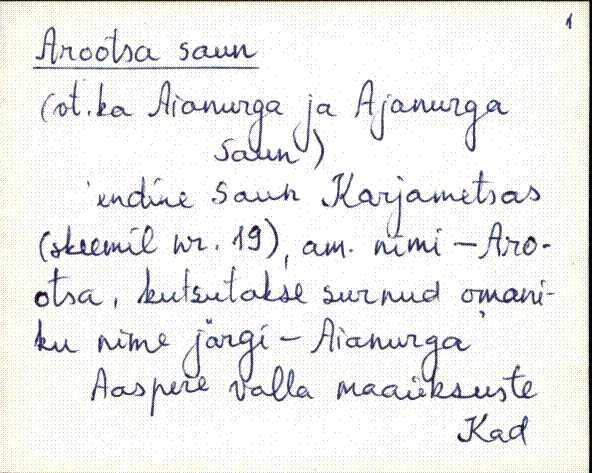 1
Arootsa saun
(vt. ka Aianurga ja Ajanurga
saun)
'endine saun Karjametsas
(skeemil nr. 19), am. nimi – Aro-
otsa, kutsutakse surnud omani-
ku nime järgi – Aianurga'
Aaspere valla maaüksuste
Kad